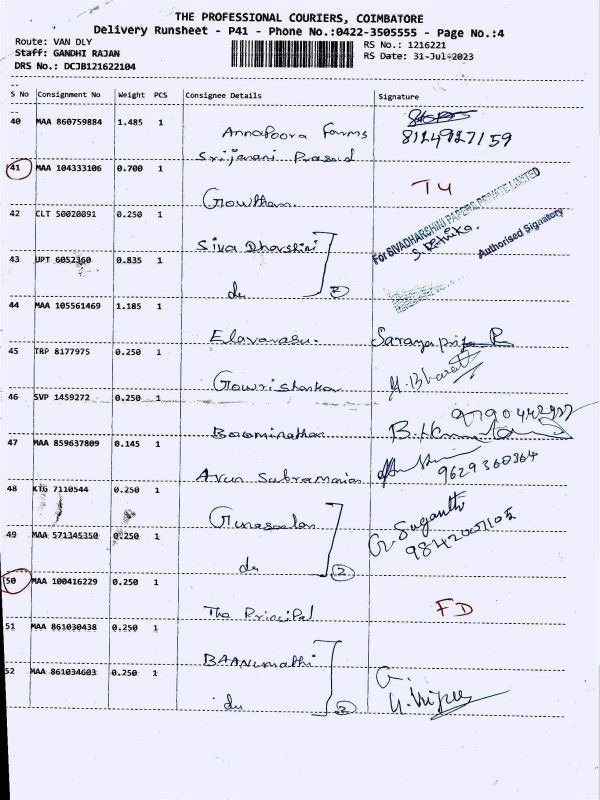 THE PROFESSIONAL COURIERS, COIMBATORE
Delivery Runsheet - P41 - Phone No.:0422-3505555 - Page No.:4
Route: VAN DLY
RS No.: 1216221
Staff: GANDHI RAJAN
RS Date: 31-Jul-2023
DRS No.: DCJB121622104
S No Consignment No Weight PCS Consignee Details Signature
40 MAA 860759884 1.485 1 Annapoora Farms 8124927159
Srijanani Prasad
41 MAA 104333106 0.700 1 T4
Gowtham.
For SIVADHARSHINI PAPERS PRIVATE LIMITED
42 CLT 50020091 0.250 1
Siva Dharshini
Authorised Signatory
43 UPT 6052360 0.835 1
du 2
44 MAA 105561469 1.185 1
Elavarasu. Saranya priya R
45 TRP 8177975 0.250 1
Gowrishankar
46 SVP 1459272 0.250 1
Boominathan
47 MAA 859637809 0.145 1
Arun Subramanian 9629360364
48 KTG 7110544 0.250 1
Gunaseelan G. Suganthi
49 MAA 571345350 0.250 1 9842007105
du 2
50 MAA 100416229 0.250 1
The Principal FD
51 MAA 861030438 0.250 1
BAANUmathi
52 MAA 861034603 0.250 1
du 2